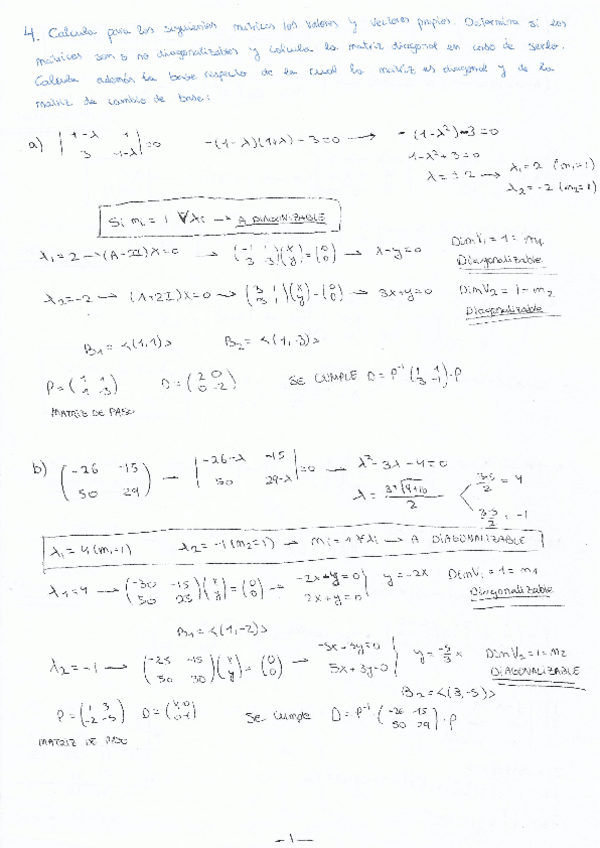 4. Calcula para las siguientes matrices los valores y vectores propios. Determina si las
matrices son o no diagonalizables y calcula la matriz diagonal en caso de serlo.
Calcula además la base respecto de la cual la matriz es diagonal y de la
matriz de cambio de base:
a) |1-λ 1; 3 -1-λ|=0 -(1-λ)(1+λ)-3=0 → -(1-λ²)-3=0
1-λ²+3=0
λ=±2 → λ₁=2 (m₁=1)
λ₂=-2 (m₂=1)
Si mi=1 ∀λi → A DIAGONIZABLE
λ₁=2 → (A-2I)X=0 → (-1 1; 3 -3)(x; y)=(0; 0) → x-y=0 DimV₁=1=m₁
Diagonalizable
λ₂=-2 → (A+2I)X=0 → (3 1; 3 1)(x; y)=(0; 0) → 3x+y=0 DimV₂=1=m₂
Diagonalizable
B₁=<(1,1)> B₂=<(1,-3)>
P=(1 1; 1 -3) D=(2 0; 0 -2) SE CUMPLE D=P⁻¹(1 1; 3 -1)·P
MATRIZ DE PASO
b) (-26 -15; 50 29) → |-26-λ -15; 50 29-λ|=0 → λ²-3λ-4=0
λ=(3±√(9+16))/2 (3+5)/2=4
(3-5)/2=-1
λ₁=4 (m₁=1) λ₂=-1 (m₂=1) → mi=1 ∀λi → A DIAGONALIZABLE
λ₁=4 → (-30 -15; 50 25)(x; y)=(0; 0) → -2x+y=0 2x+y=0 y=-2x DimV₁=1=m₁
Diagonalizable
B₁=<(1,-2)>
λ₂=-1 → (-25 -15; 50 30)(x; y)=(0; 0) → -5x-3y=0 5x+3y=0 y=-5/3 x DimV₂=1=m₂
DIAGONALIZABLE
B₂=<(3,-5)>
P=(1 3; -2 -5) D=(4 0; 0 -1) Se cumple D=P⁻¹(-26 -15; 50 29)·P
MATRIZ DE PASO
-1-